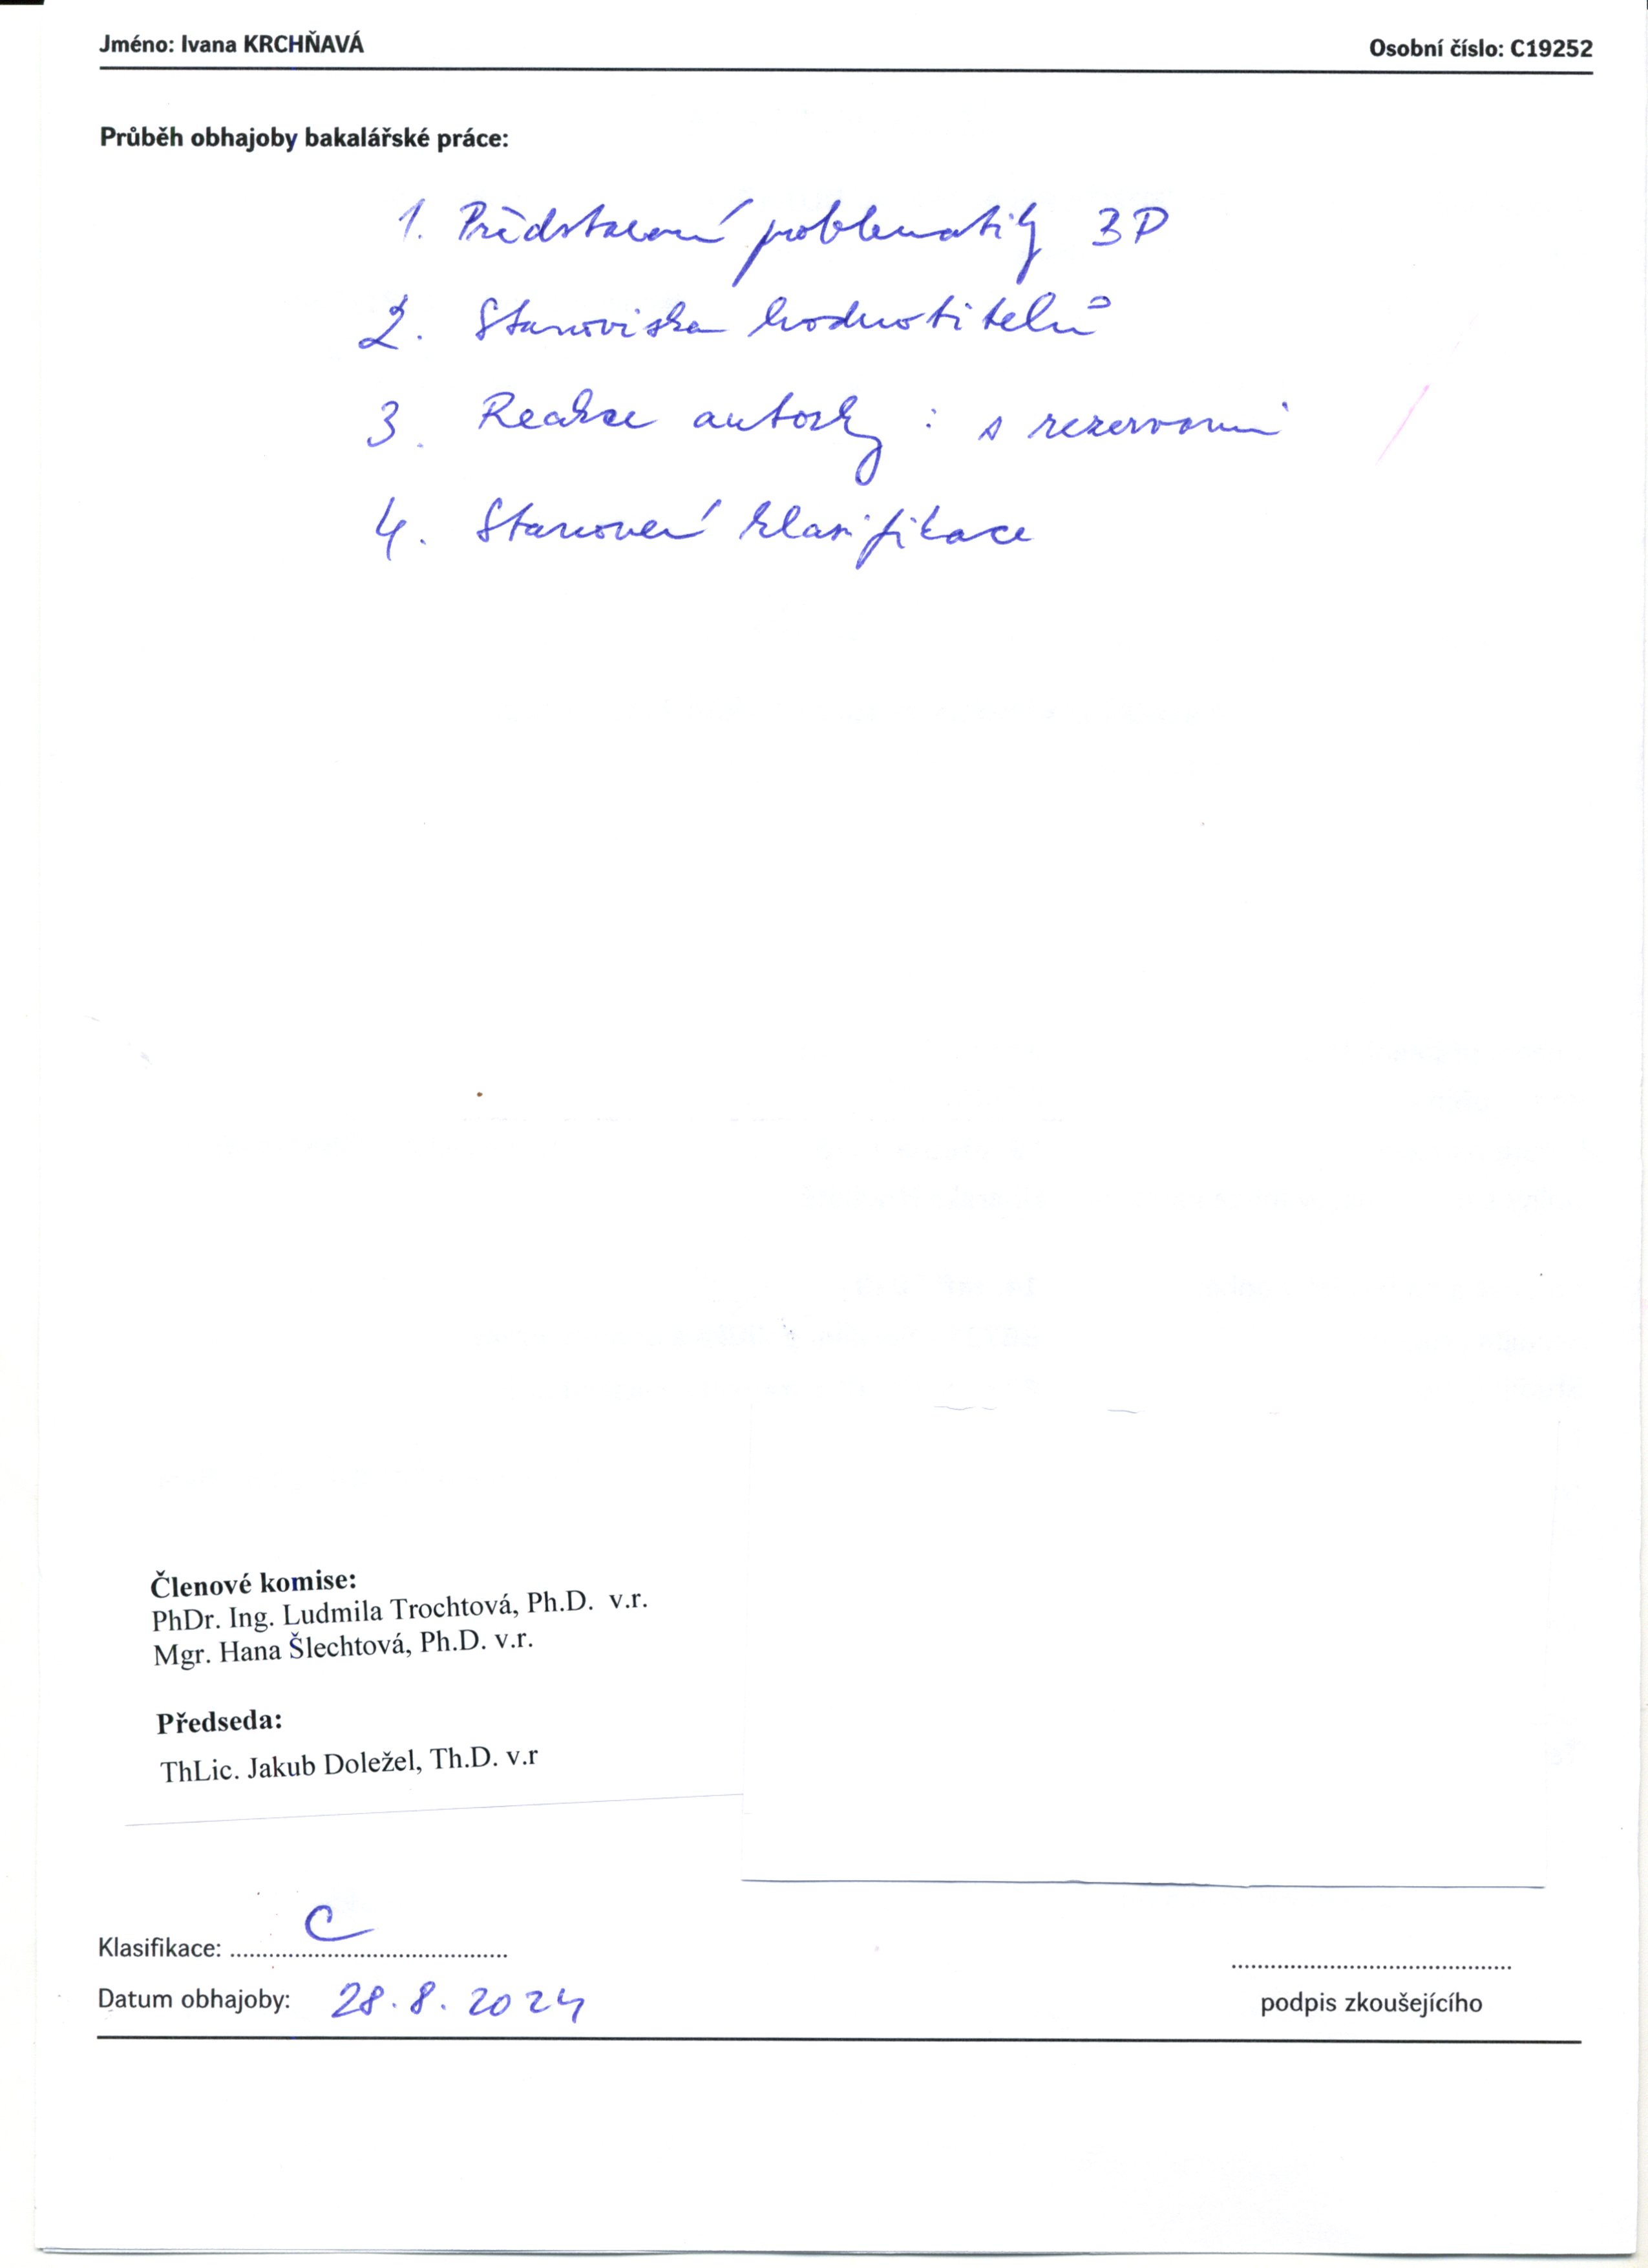 Jméno: Ivana KRCHŇAVÁ Osobní číslo: C19252
Průběh obhajoby bakalářské práce:
1. Představení problematiky BP
2. Stanoviska hodnotitelů
3. Reakce autorky : s rezervami
4. Stanovení klasifikace
Členové komise:
PhDr. Ing. Ludmila Trochtová, Ph.D. v.r.
Mgr. Hana Šlechtová, Ph.D. v.r.
Předseda:
ThLic. Jakub Doležel, Th.D. v.r
Klasifikace: C
Datum obhajoby: 28.8.2024
podpis zkoušejícího